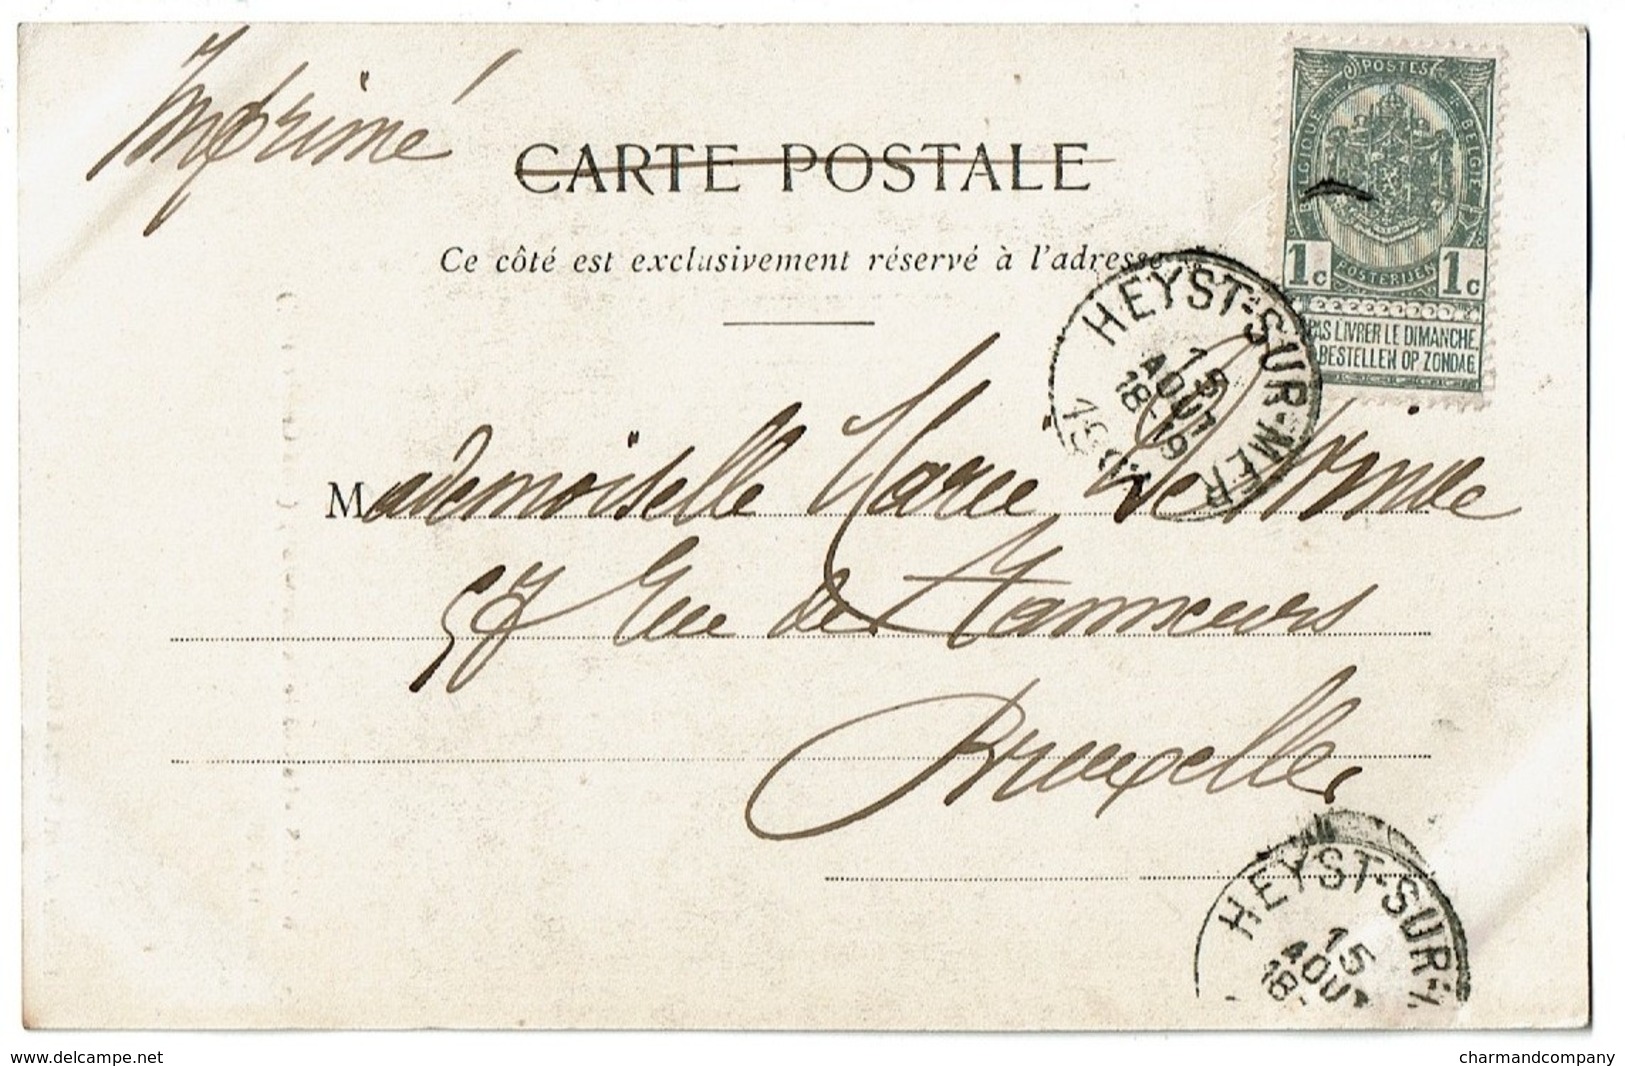 Imprimé
CARTE POSTALE
Ce côté est exclusivement réservé à l'adresse
POSTES
BELGIQUE
BELGIË
POSTERIJEN
1c 1c
PAS LIVRER LE DIMANCHE.
BESTELLEN OP ZONDAG
HEYST-SUR-MER
15
AOUT
18-19
Mademoiselle Marie
57 Rue des Tanneurs
Bruxelles
HEYST-SUR-
15
AOUT
18-
www.delcampe.net
charmandcompany